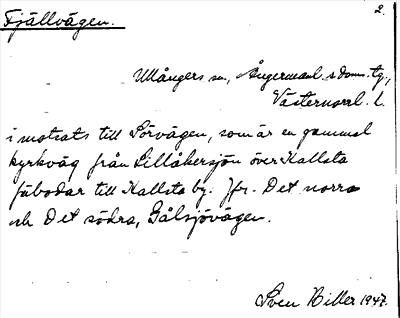 Fjällvägen. 2.
Ullångers sn, Ångermanl. s. doms. tg,
Västernorrl. l.
i motsats till Sörvägen, som är en gammal
kyrkväg från Lillåkersjön över Kallsta
fäbodar till Kallsta by. Jfr. Det norra
och Det södra, Gålsjövägen.
Sven Biller 1947.